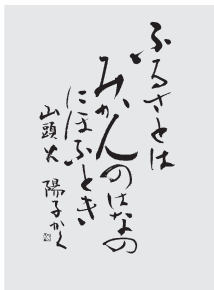 ふるさとは
みかんのはなの
にほふとき
山頭火 陽子かく